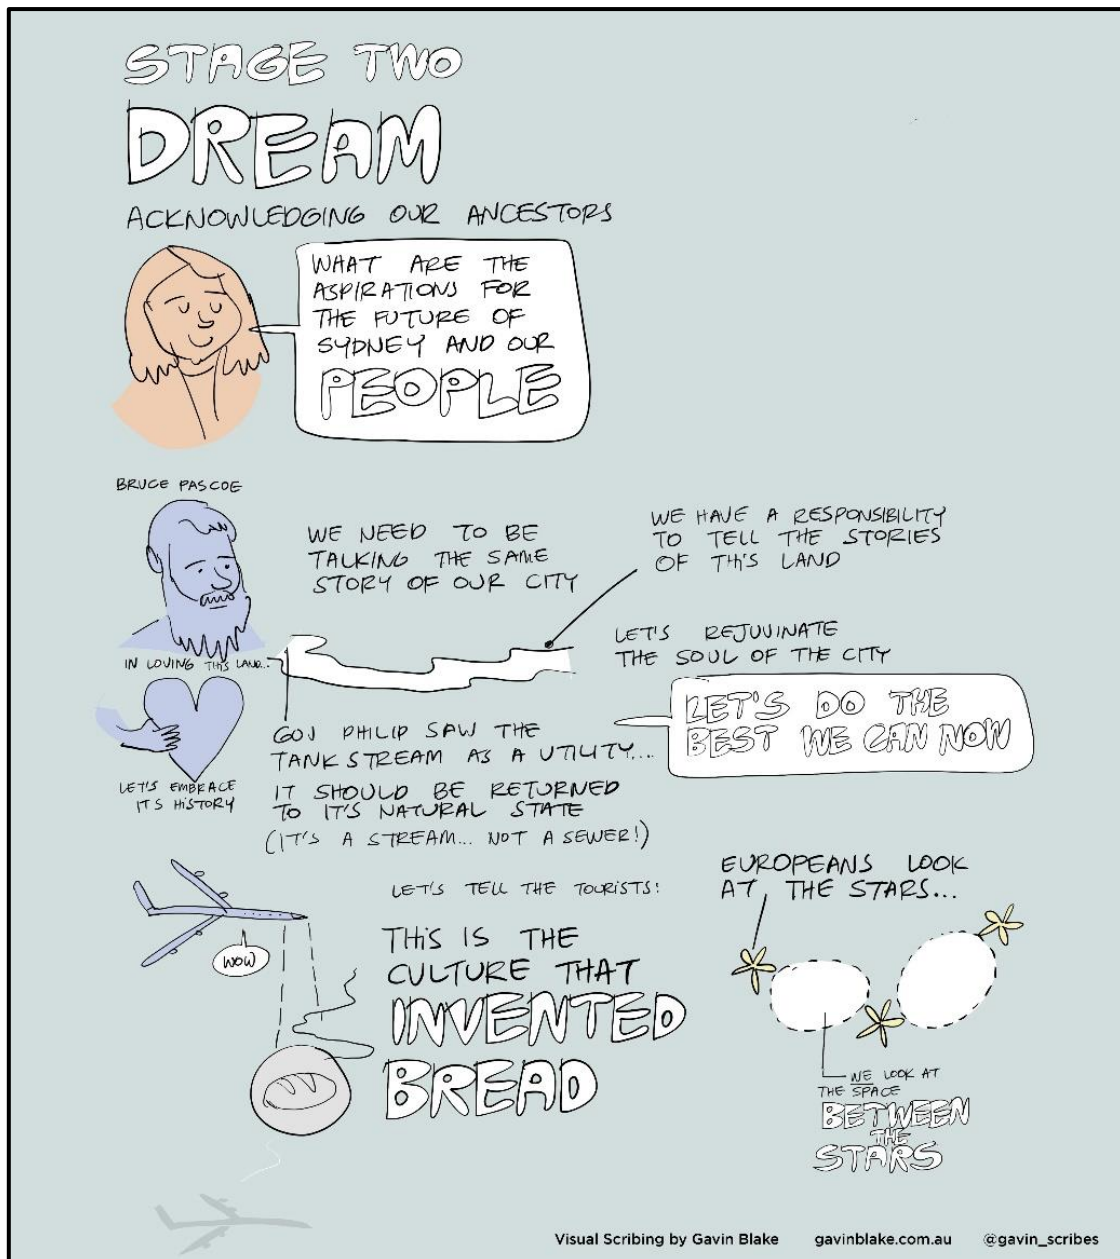 STAGE TWO
DREAM
ACKNOWLEDGING OUR ANCESTORS
WHAT ARE THE
ASPIRATIONS FOR
THE FUTURE OF
SYDNEY AND OUR
PEOPLE
BRUCE PASCOE
WE NEED TO BE
TALKING THE SAME
STORY OF OUR CITY
WE HAVE A RESPONSIBILITY
TO TELL THE STORIES
OF THIS LAND
IN LOVING THIS LAND...
LET'S REJUVINATE
THE SOUL OF THE CITY
LET'S DO THE
BEST WE CAN NOW
LET'S EMBRACE
ITS HISTORY
GOV PHILIP SAW THE
TANK STREAM AS A UTILITY...
IT SHOULD BE RETURNED
TO IT'S NATURAL STATE
(IT'S A STREAM... NOT A SEWER!)
WOW
LET'S TELL THE TOURISTS:
THIS IS THE
CULTURE THAT
INVENTED
BREAD
EUROPEANS LOOK
AT THE STARS...
WE LOOK AT
THE SPACE
BETWEEN
THE
STARS
Visual Scribing by Gavin Blake gavinblake.com.au @gavin_scribes